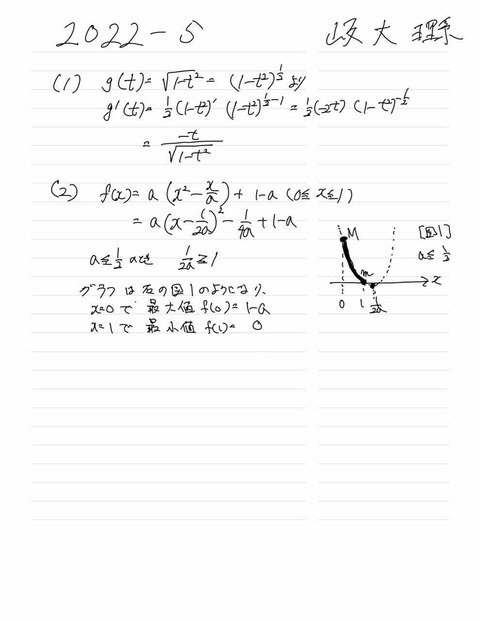 2022-5 岐大 理系
(1) g(t)=√1-t² = (1-t²)^{1/2} より
g'(t)= 1/2(1-t²)' (1-t²)^{1/2-1} = 1/2(-2t) (1-t²)^{-1/2}
= -t/√1-t²
(2) f(x)= a(x²-x/a)+1-a (0≦x≦1)
= a(x-1/2a)²-1/4a+1-a
a≦1/2 のとき 1/2a≧1
グラフは右の図1のようになり、
x=0で 最大値 f(0)=1-a
x=1で 最小値 f(1)=0
[図1]
a≦1/2
M
m
x
0 1 1/2a